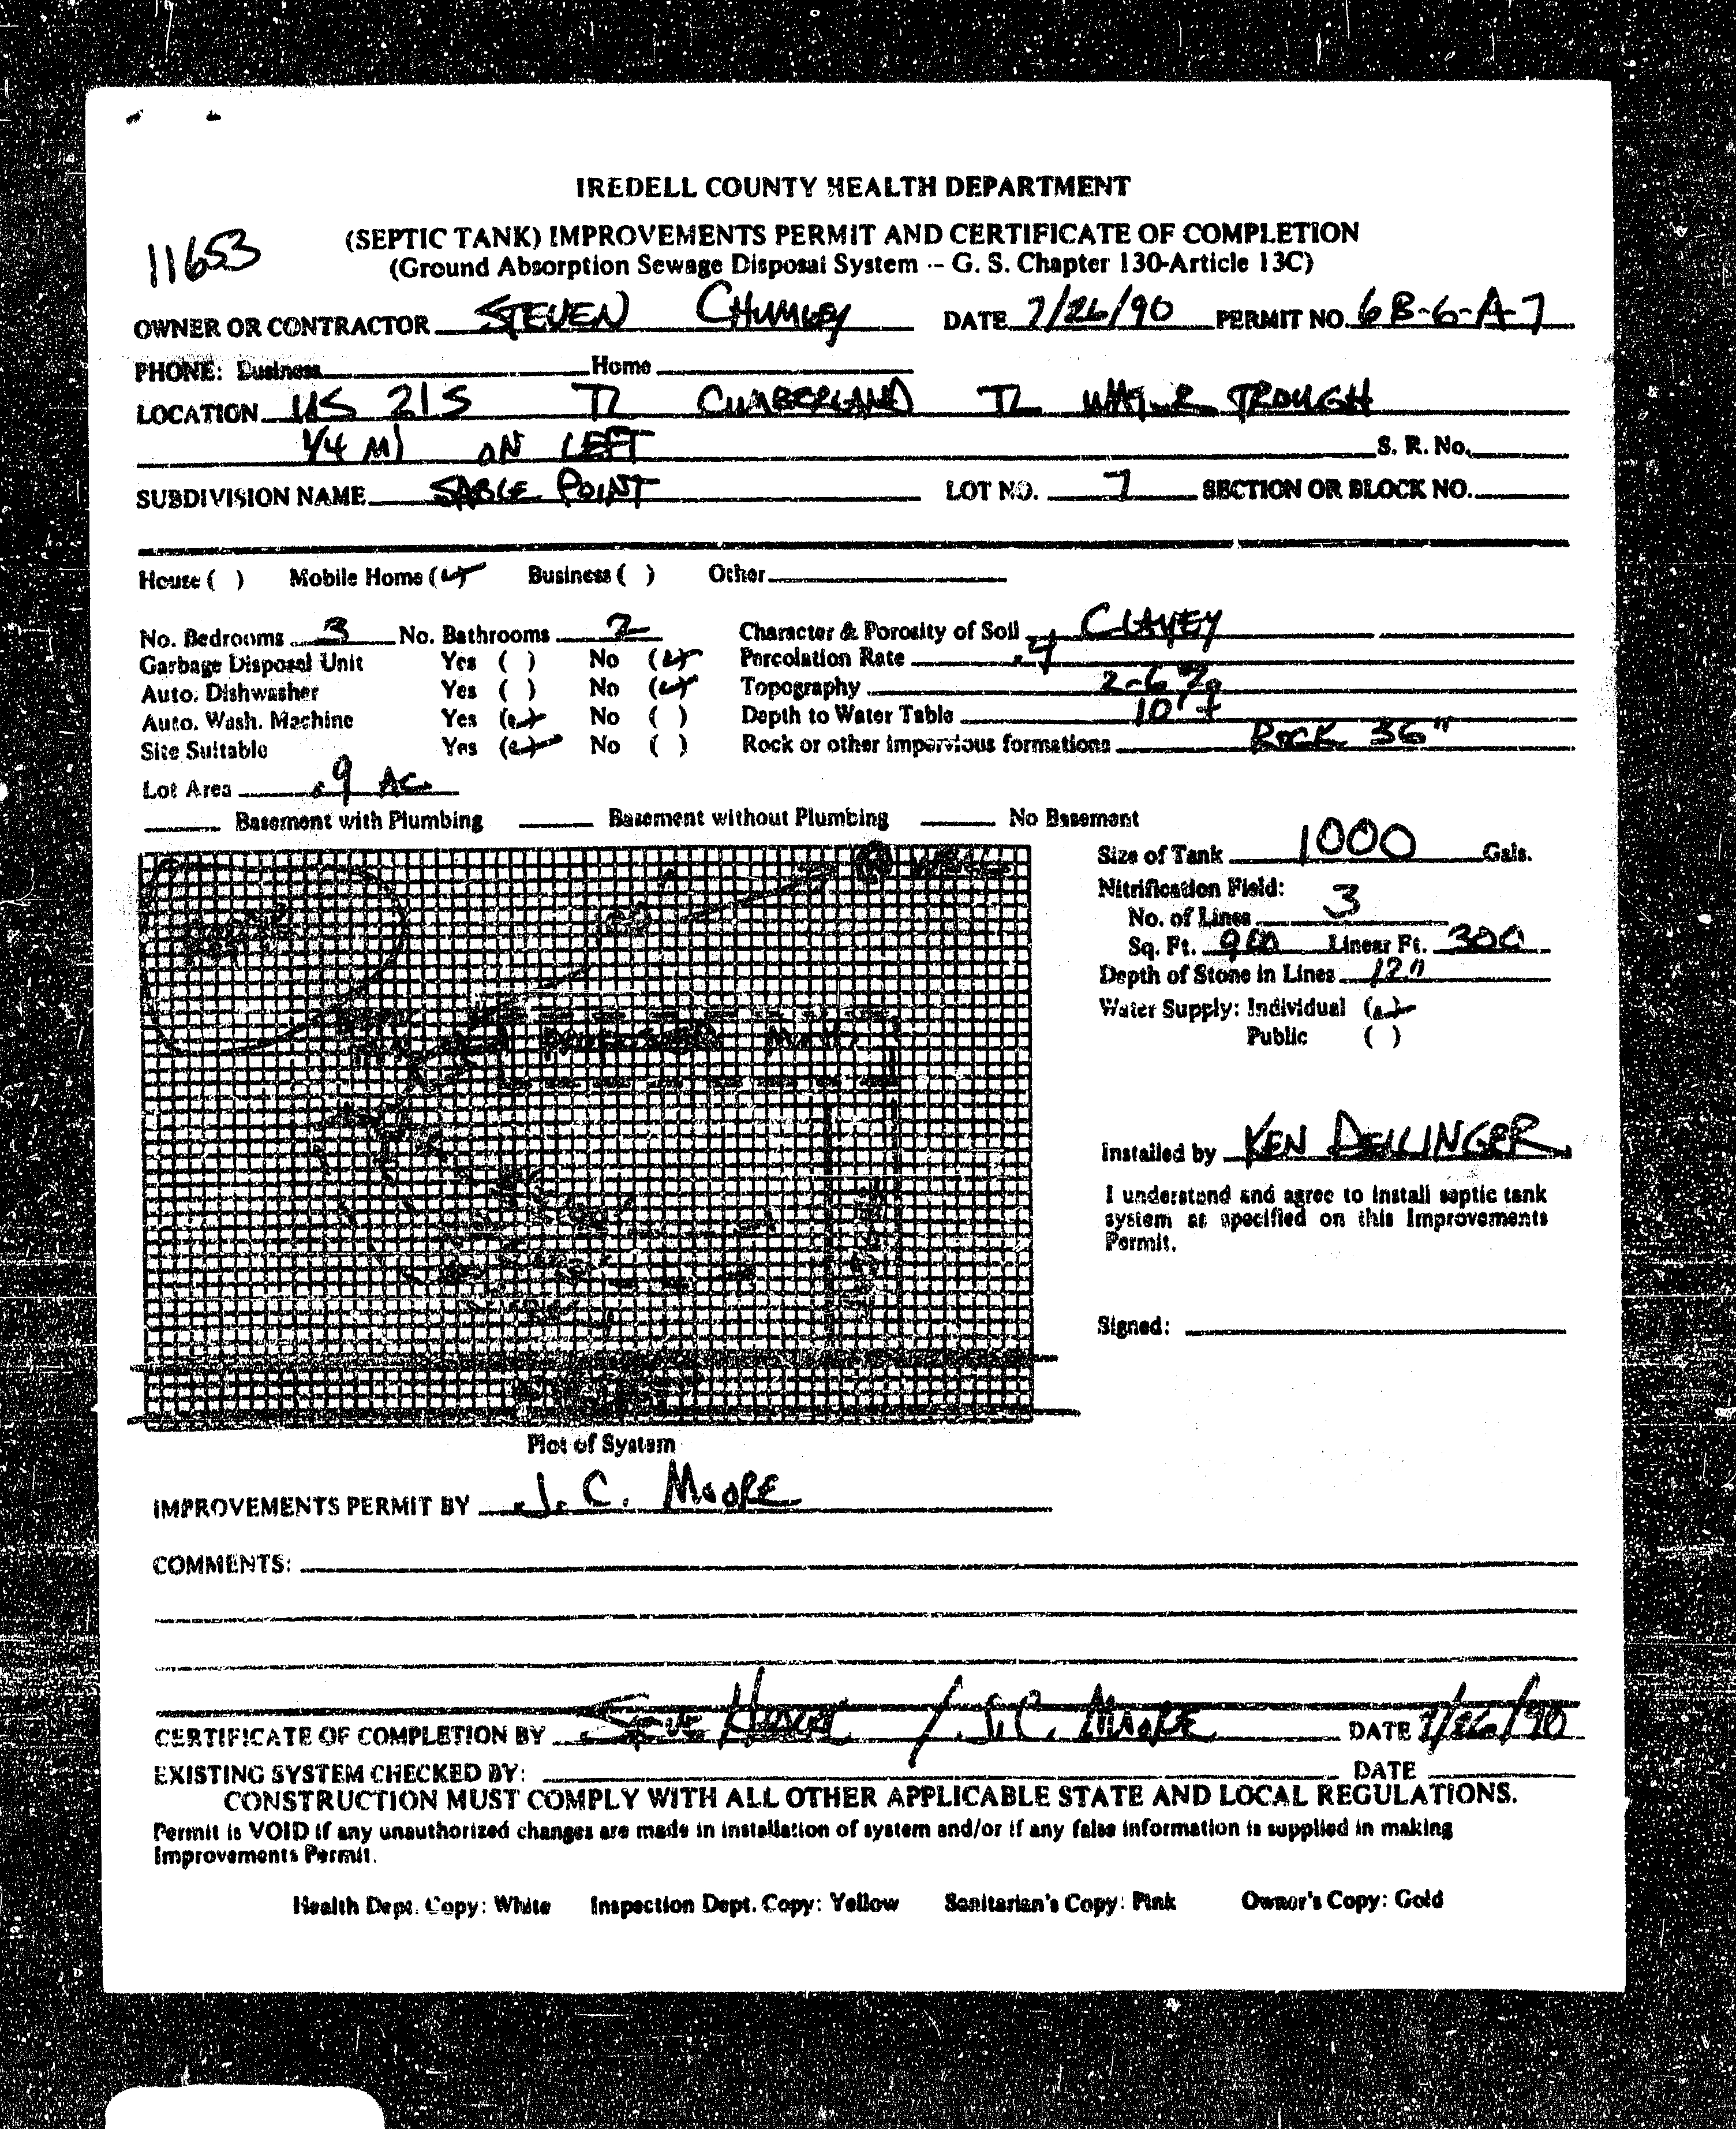 IREDELL COUNTY HEALTH DEPARTMENT
11653
(SEPTIC TANK) IMPROVEMENTS PERMIT AND CERTIFICATE OF COMPLETION
(Ground Absorption Sewage Disposal System -- G. S. Chapter 130-Article 13C)
OWNER OR CONTRACTOR STEVEN CHUMLEY DATE 7/26/90 PERMIT NO. 6B-6-A-7
PHONE: Business Home
LOCATION US 21S TL CUMBERLAND TL WATER TROUGH
1/4 MI ON LEFT S. R. No.
SUBDIVISION NAME SABLE POINT LOT NO. 7 SECTION OR BLOCK NO.
House ( ) Mobile Home (✓) Business ( ) Other
No. Bedrooms 3 No. Bathrooms 2 Character & Porosity of Soil CLAYEY
Garbage Disposal Unit Yes ( ) No (✓) Percolation Rate .4
Auto. Dishwasher Yes ( ) No (✓) Topography 2-6%
Auto. Wash. Machine Yes (✓) No ( ) Depth to Water Table 10'+
Site Suitable Yes (✓) No ( ) Rock or other impervious formations ROCK 36"
Lot Area .9 AC.
Basement with Plumbing Basement without Plumbing No Basement
Size of Tank 1000 Gals.
Nitrification Field:
No. of Lines 3
Sq. Ft. 900 Linear Ft. 300
Depth of Stone in Lines 12"
Water Supply: Individual (✓)
Public ( )
Installed by KEN DELLINGER
I understand and agree to install septic tank
system as specified on this Improvements
Permit.
Signed:
Plot of System
IMPROVEMENTS PERMIT BY J. C. MOORE
COMMENTS:
CERTIFICATE OF COMPLETION BY / J.C. MOORE DATE 7/26/90
EXISTING SYSTEM CHECKED BY: DATE
CONSTRUCTION MUST COMPLY WITH ALL OTHER APPLICABLE STATE AND LOCAL REGULATIONS.
Permit is VOID if any unauthorized changes are made in installation of system and/or if any false information is supplied in making
Improvements Permit.
Health Dept. Copy: White Inspection Dept. Copy: Yellow Sanitarian's Copy: Pink Owner's Copy: Gold